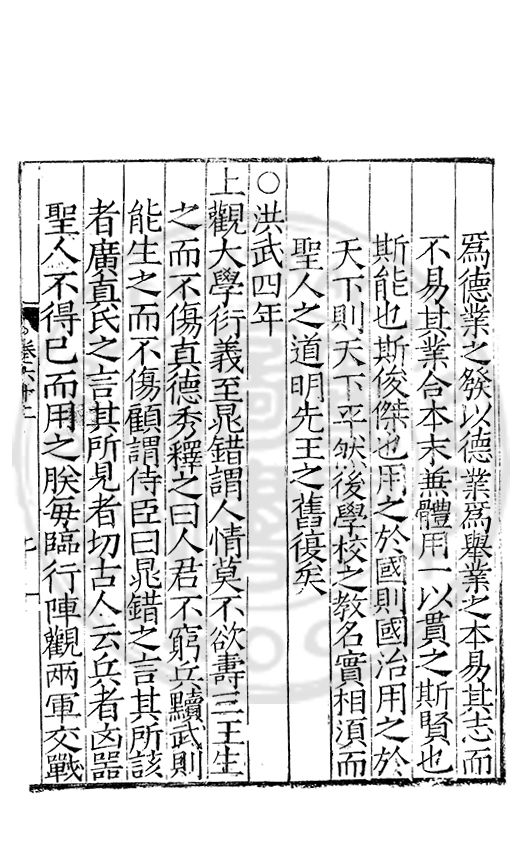 爲德業之發以德業爲舉業之本易其志而
不易其業合本末兼體用一以貫之斯賢也
斯能也斯俊傑也用之於國則國治用之於
天下則天下平然後學校之教名實相須而
聖人之道明先王之舊復矣
○洪武四年
上觀大學衍義至鼂錯謂人情莫不欲壽三王生
之而不傷真德秀釋之曰人君不窮兵黷武則
能生之而不傷顧謂侍臣曰鼂錯之言其所該
者廣真氏之言其所見者切古人云兵者凶器
聖人不得已而用之朕每臨行陣觀兩軍交戰
卷六十二
七